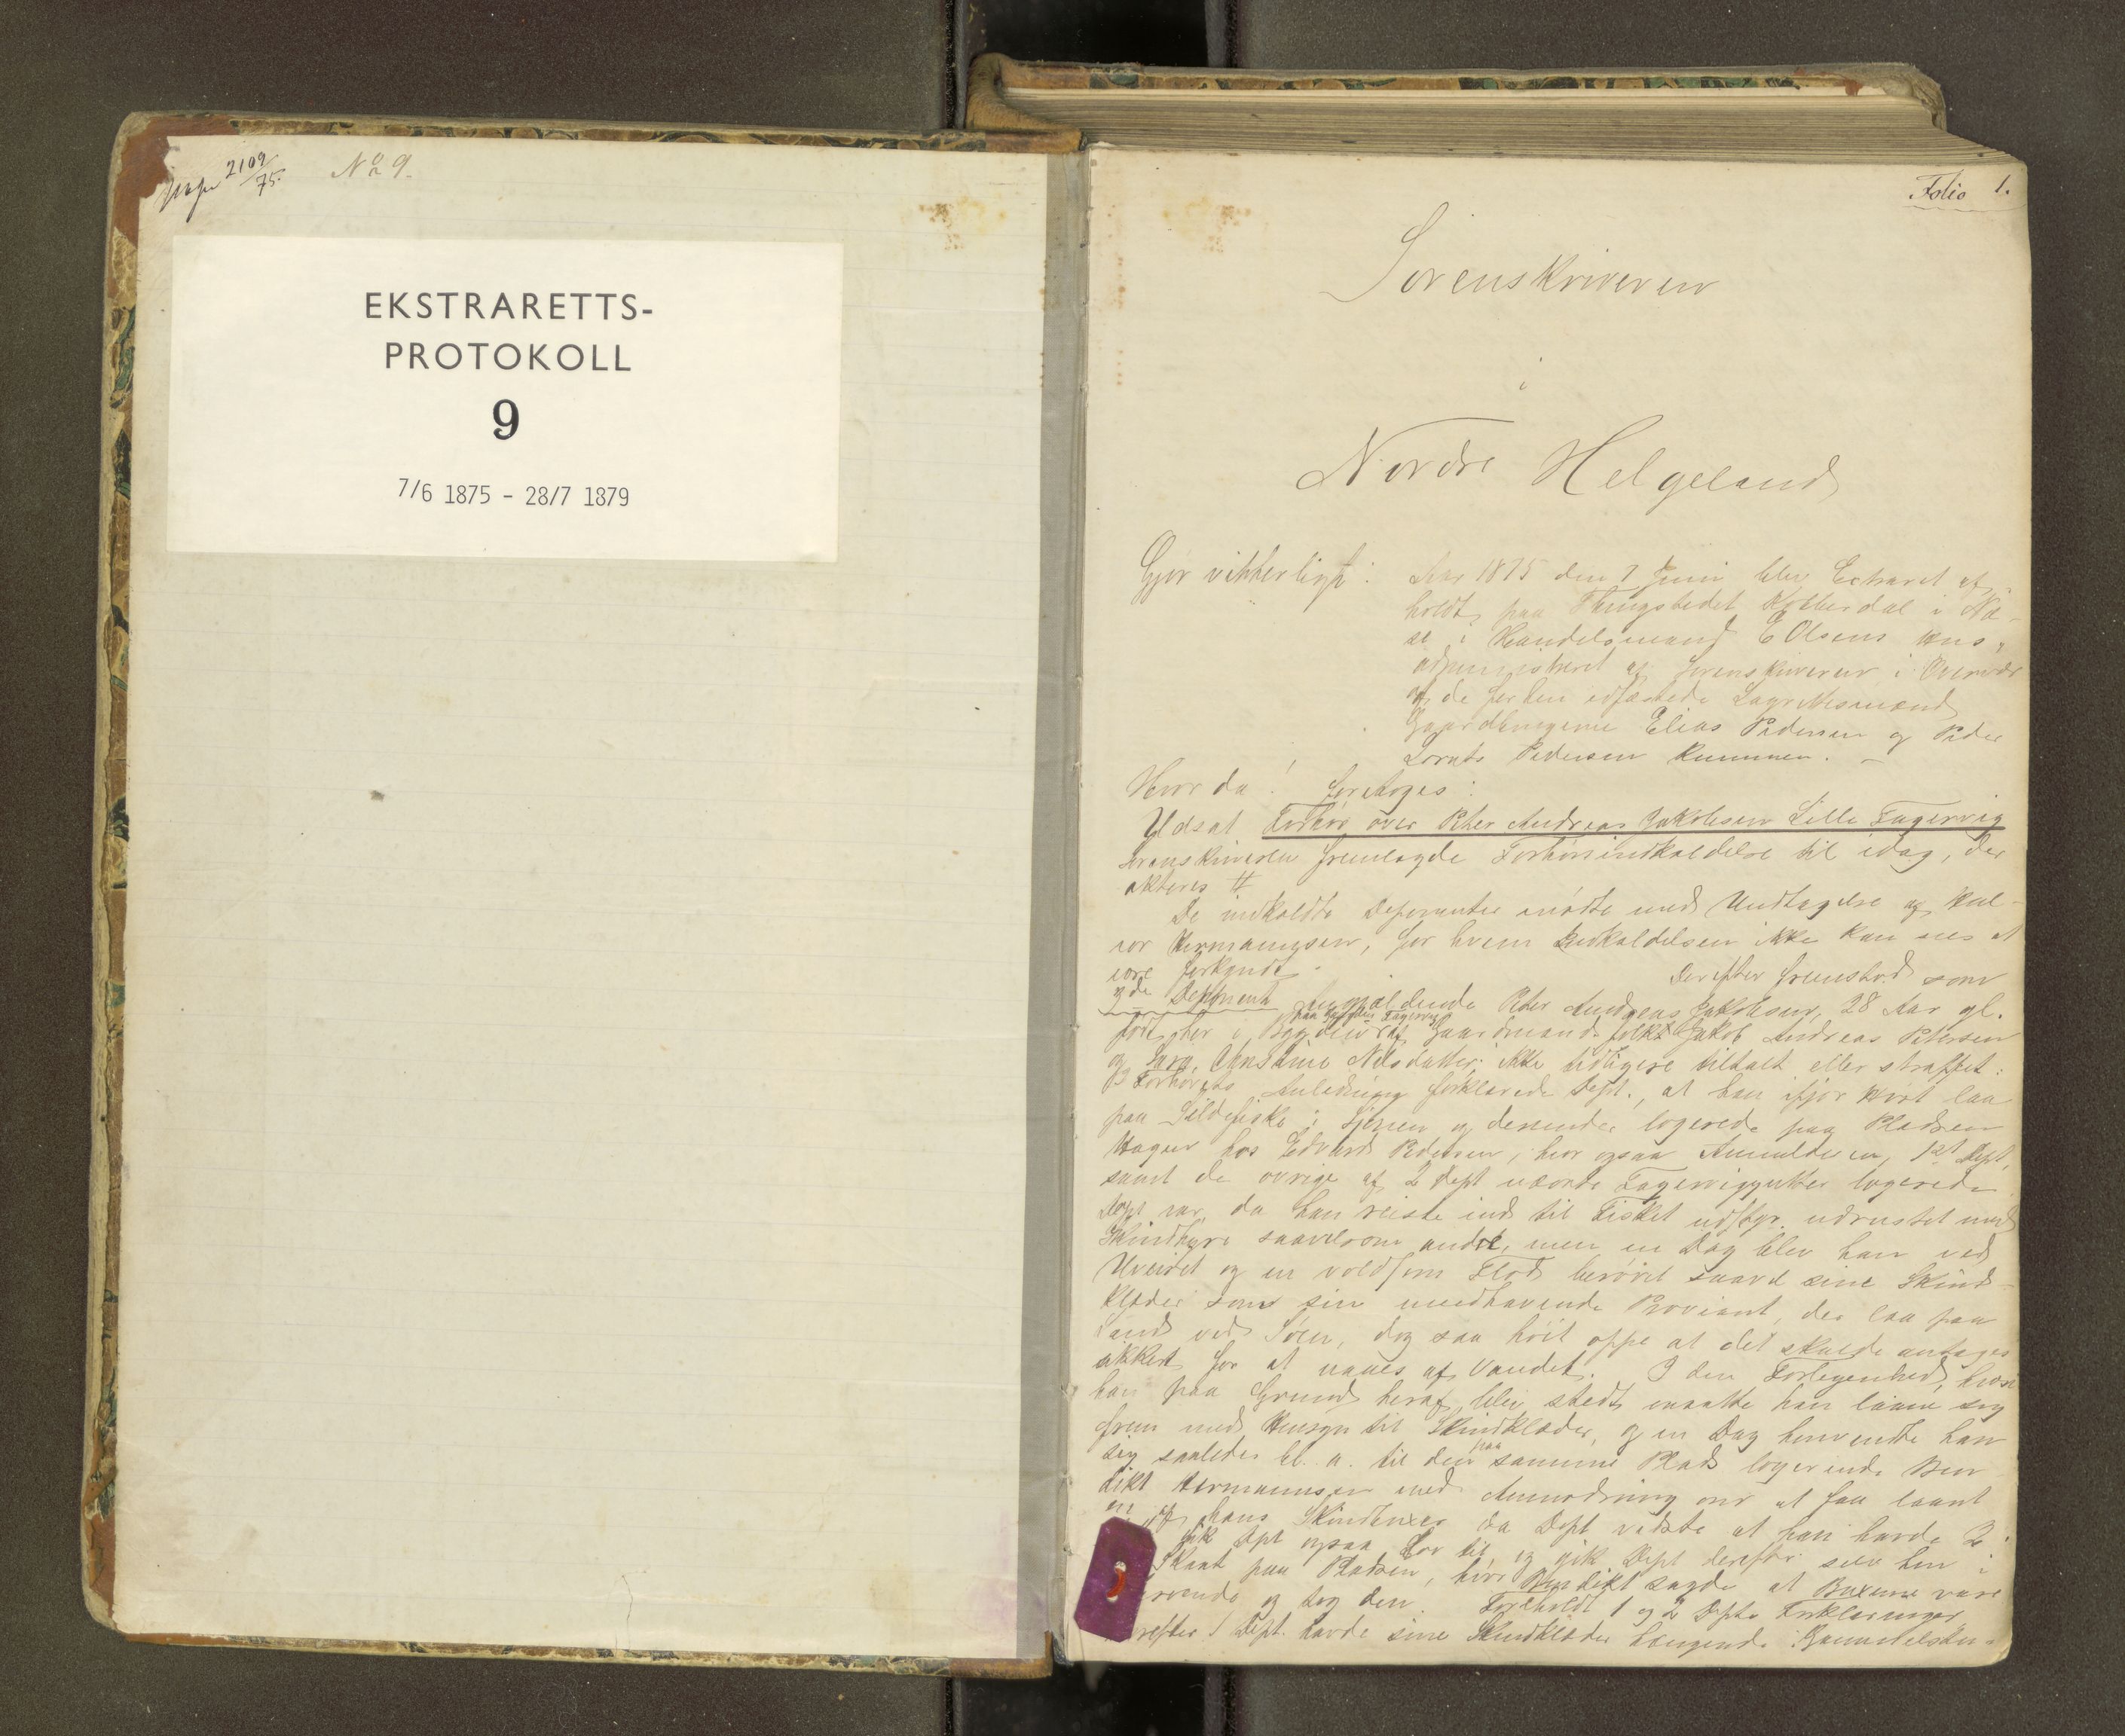 2109/75.
No 9.
EKSTRARETTS-
PROTOKOLL
9
7/6 1875 - 28/7 1879
Folio 1.
Sorenskriveren
i
Nordre Helgeland
Gjør vitterligt: Aar 1875 den 7 Juni blev Extraret af-
holdt paa Thingstedet i Næ-
i Handelsmand E Olsens Hus,
administreret af Sorenskriveren i Overvær
af de edfæstede Lagrettesmænd
Gaardbrugerne Elias Pedersen og Peder
Lornts Pedersen
Hvor da! foretoges:
Udsat Forhør over Peter Andreas Jakobsen Lille Fagervig
Sorenskriveren fremlagde Forhørsindkaldelse til idag, der
akteres #
De indkaldte Deponenter mødte med Undtagelse af Hal-
vor Hermansen, for hvem Indkaldelsen ikke kan sees at
være forkyndt. Derefter fremstod som
Deponent Anmeldende Peter Andreas Jakobsen, 28 Aar gl.
født her i Bygden af Gaardmandsfolk Jakob Andreas Petersen
og Christine Nilsdatter; ikke tidligere tiltalt eller straffet:
I Forhørets Anledning forklarede Dept., at han ifjor Høst laa
paa Sildefiske i Sjonen og derunder logerede paa Pladsen
Hagen hos Edvard Pedersen, hvor ogsaa Anmelderen, 1st Dept,
samt de øvrige af 2 Dept nævnte Fagerviggutter logerede
Dept var, da han reiste ind til Fisket udrustet med
Skindhyre saavelsom andre, men en Dag blev han ved
Uveiret og en voldsom Flod berøvet saavel sine Skind-
klæder som sin medhavende Proviant, der laa paa
Land ved Søen, dog saa høit oppe at det skulde antages
sikkert for at naaes af Vandet. I den Forlegenhed, hvori
han paa Grund heraf blev stedt maatte han laane sig
frem med Hensyn til Skindklæder, og en Dag henvendte han
sig saaledes bl. a. til den paa samme Plads logerende Ben-
dikt Hermansen med Anmodning om at faa laant
en af hans Skindbuxer da Dept vidste at han havde 2.
fik Dpt ogsaa Lov til og gik Dept derefter selv hen i
paa Pladsen, hvor Bendikt sagde at Buxerne vare
og tog den. Foreholdt 1 og 2 Depts Forklaringer
hvorefter 1 Dept. havde sine Skindklæder hængende i